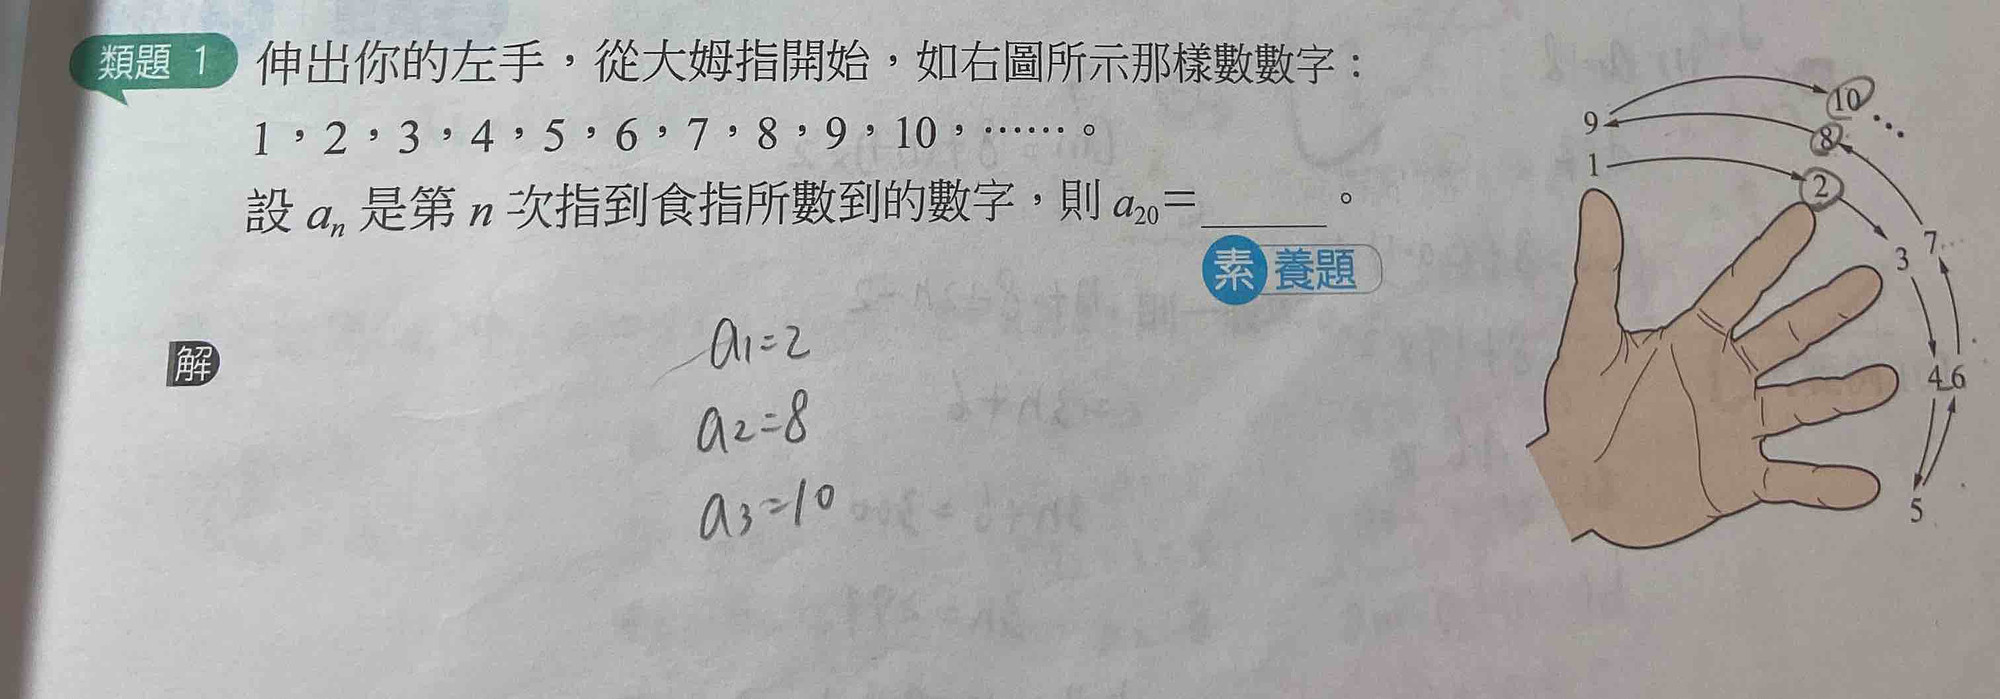 類題 1 伸出你的左手，從大姆指開始，如右圖所示那樣數數字：
1，2，3，4，5，6，7，8，9，10，……。
設 aₙ 是第 n 次指到食指所數到的數字，則 a₂₀＝______。
素養題
解
a₁=2
a₂=8
a₃=10
10
9
8
1
2
3
7
4
6
5